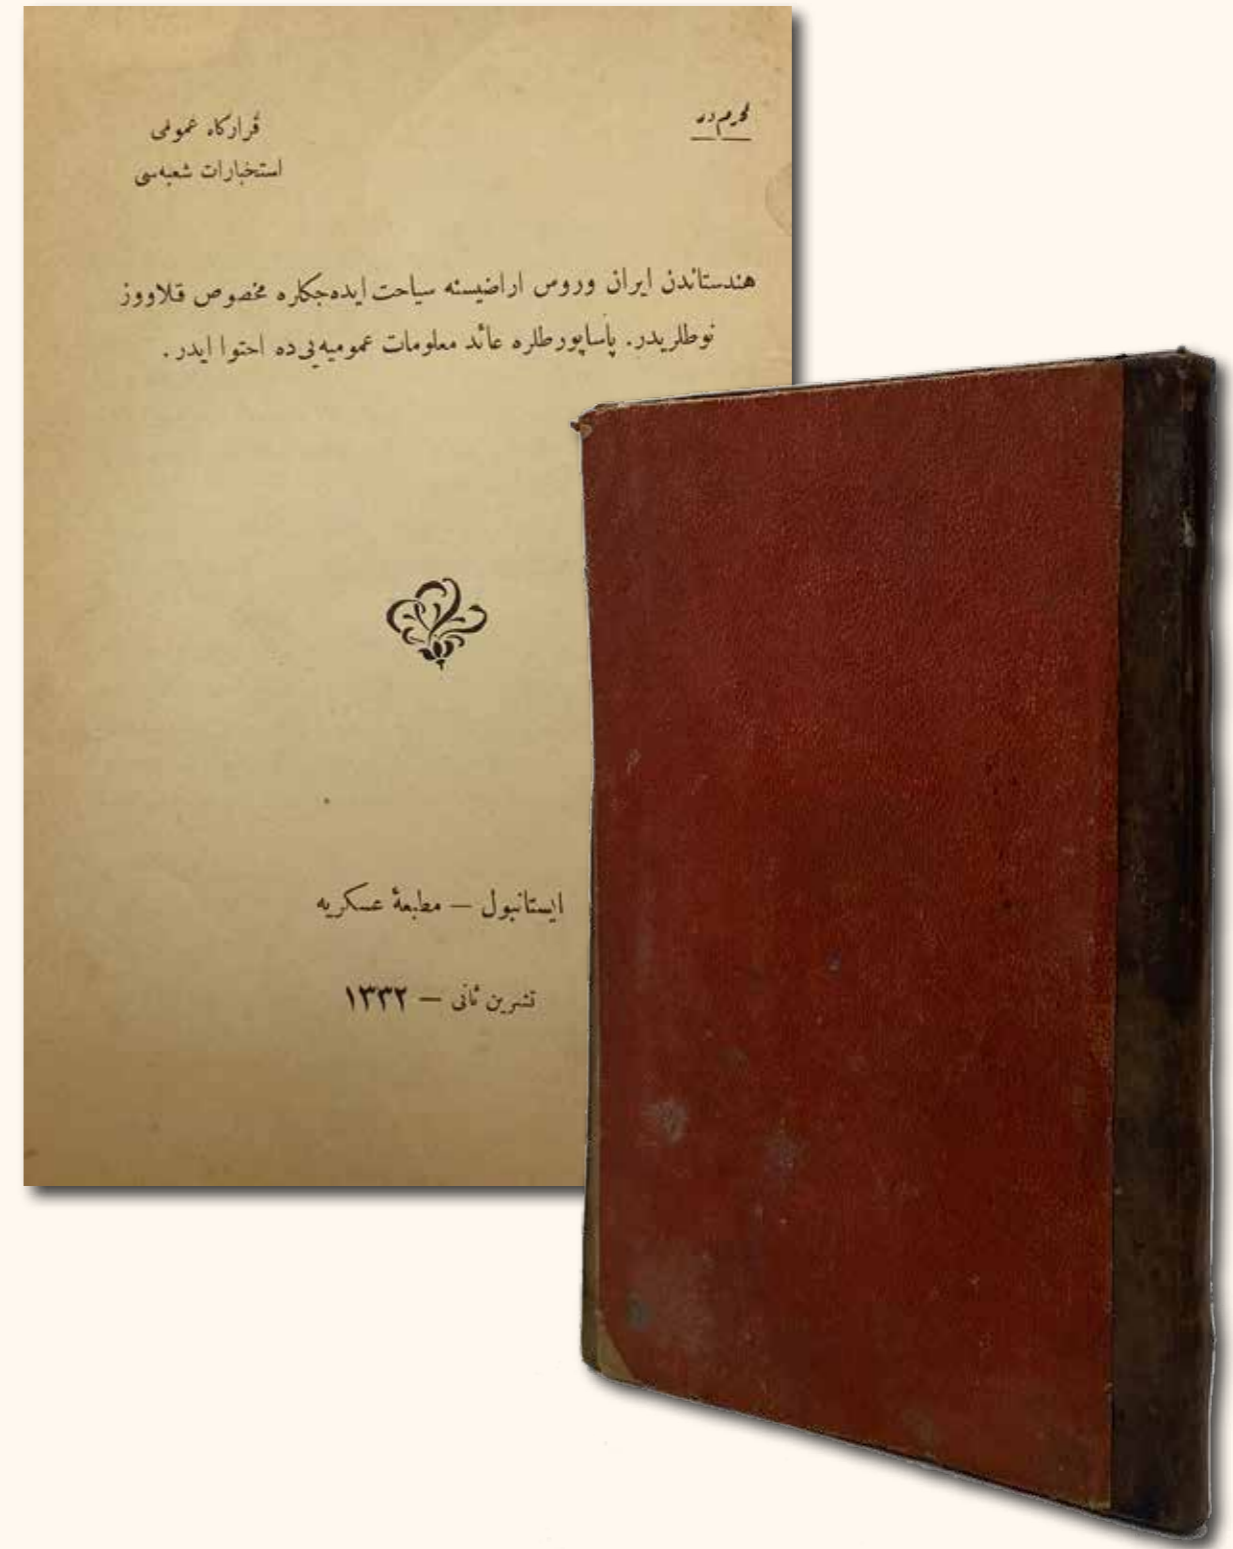 محرمدر
قرارگاه عمومی
استخبارات شعبه‌سی
هندستاندن ایران وروس اراضیسنه سیاحت ایده‌جکلره مخصوص قلاووز
نوطلریدر. پاساپورطلره عائد معلومات عمومیه‌یی‌ده احتوا ایدر.
ایستانبول — مطبعهٔ عسکریه
تشرین ثانی — ۱۳۳۲